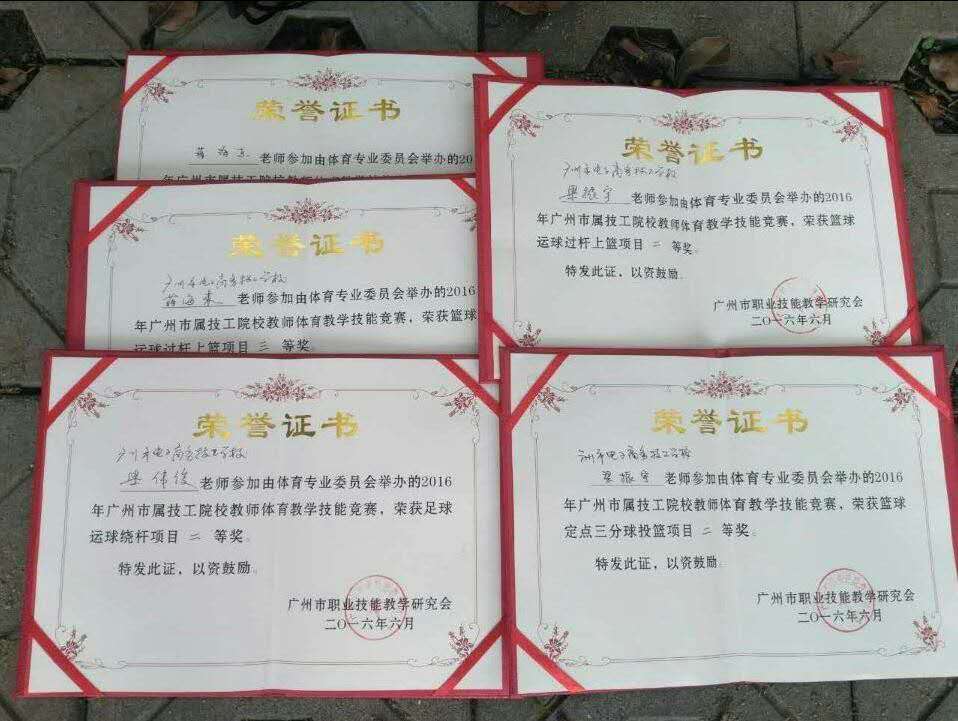 荣誉证书
老师参加由体育专业委员会举办的20
年广州市属技工院校教师
荣誉证书
广州市电子商务技工学校
蒋海东 老师参加由体育专业委员会举办的2016
年广州市属技工院校教师体育教学技能竞赛，荣获篮球
运球过杆上篮项目 三 等奖。
荣誉证书
广州市电子商务技工学校
梁振宇 老师参加由体育专业委员会举办的2016
年广州市属技工院校教师体育教学技能竞赛，荣获篮球
运球过杆上篮项目 二 等奖。
特发此证，以资鼓励。
广州市职业技能教学研究会
二〇一六年六月
荣誉证书
广州市电子商务技工学校
梁伟俊 老师参加由体育专业委员会举办的2016
年广州市属技工院校教师体育教学技能竞赛，荣获足球
运球绕杆项目 二 等奖。
特发此证，以资鼓励。
广州市职业技能教学研究会
二〇一六年六月
荣誉证书
广州市电子商务技工学校
梁振宇 老师参加由体育专业委员会举办的2016
年广州市属技工院校教师体育教学技能竞赛，荣获篮球
定点三分球投篮项目 二 等奖。
特发此证，以资鼓励。
广州市职业技能教学研究会
二〇一六年六月